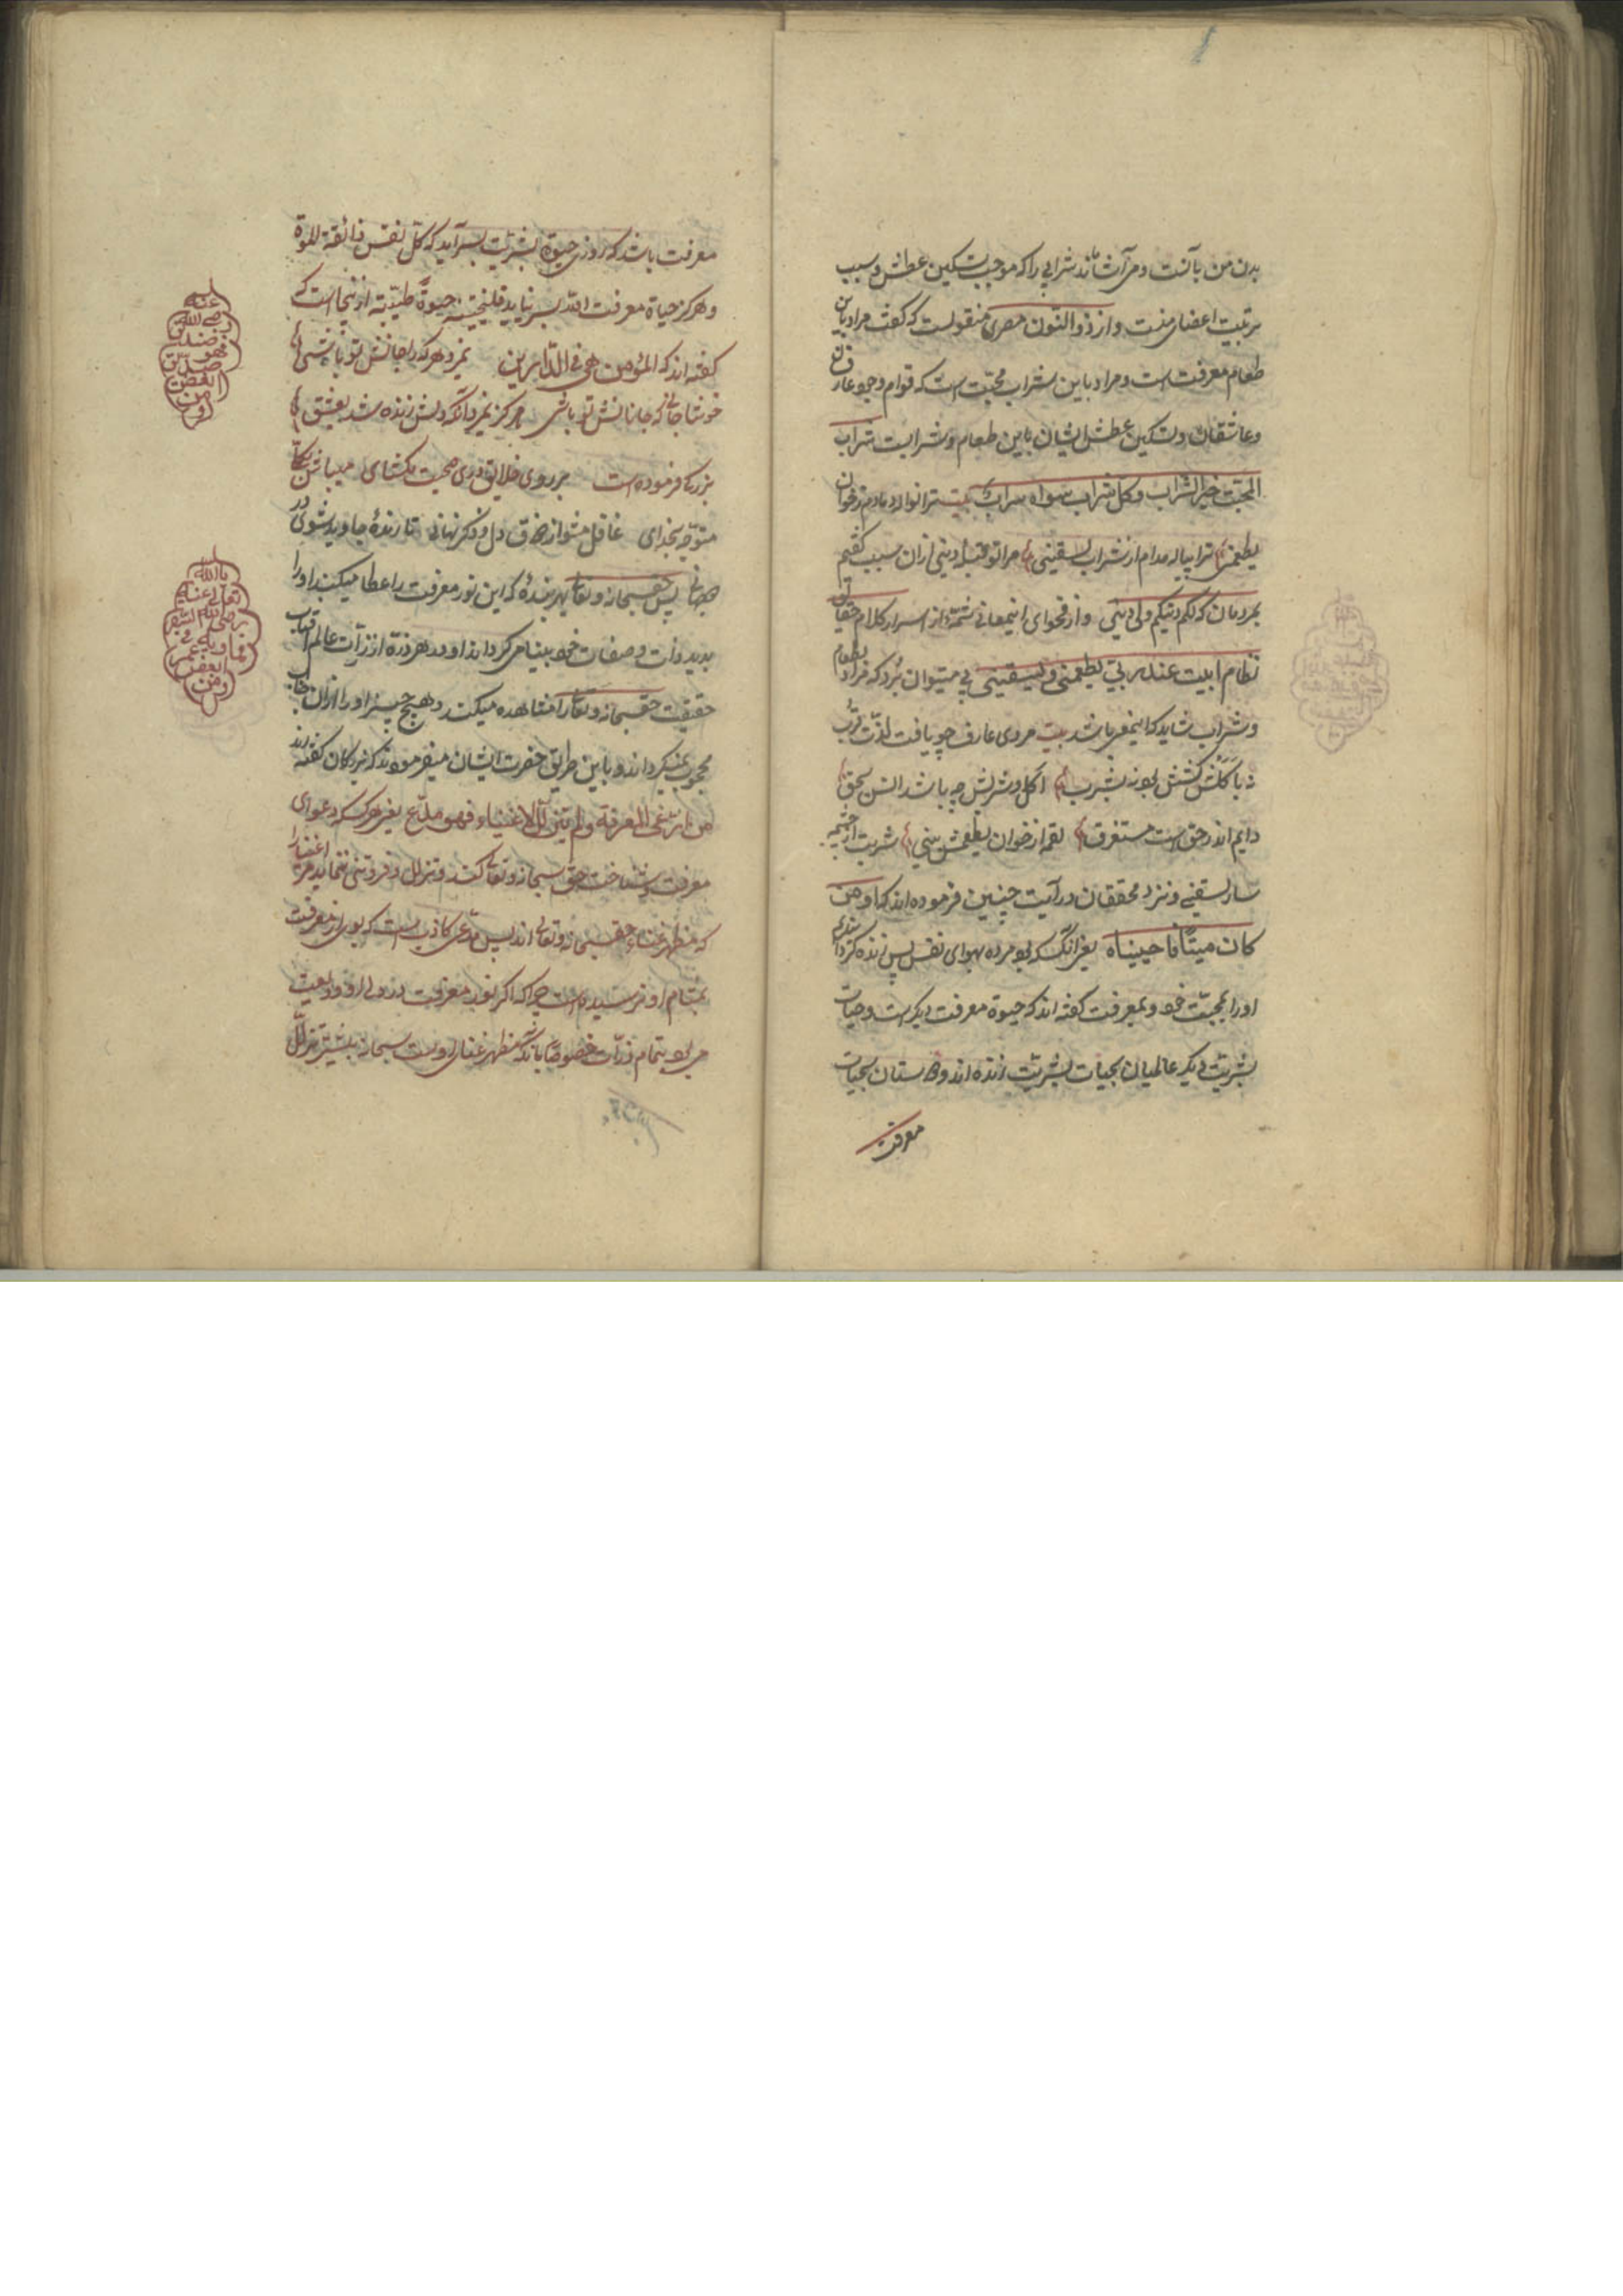 بدن من بآنست و می آشاماند شرابی را که موجب تسکین عطش و سبب
تربیت اعضای منست و از ذو النون مصری منقولست که گفت مراد باین
طعام معرفت است و مراد باین شراب محبّت است که قوام وجود عارفان
و عاشقان و تسکین عطش ایشان باین طعام و شرابست شراب
المحبّت خیر الشراب و کل شراب سواه سراب بیت ترا نوالد مادم ز خوان
یطعمنی ترا پیاله مدام از شراب یسقینی مرا تو قبلۀ دینی ازان سبب گفتم
بمردمان که لکم دینکم ولی دینی و از فحوای اینمعانی شمّۀ از اسرار کلام حقایق
نظام ابیت عند ربی یطعمنی و یسقینی پی میتوان برد که مراد بطعام
و شراب شاید که اینمعنی باشد بیت مردی عارف چو یافت لذّت قرب
نه باکلش کشش بود نه بشرب اکل و شربش چه باشد انس بحق
دایم اندر حق است مستغرق لقمه از خوان یطعمش بینی شربت از چشمه
سار یسقینی و نزد محققان در آیت چنین فرموده اند که او من
کان میتًا فاحییناه یعنی آنکسکه بود مرده بهوای نفس پس زنده کردانیدیم
او را بمحبّت خود و بمعرفت گفته اند که حیوة معرفت دیگر است و حیات
بشریّت دیگر عالمیان بحیات بشریّت زنده اند و دوستان بحیات
معرفت
معرفت باشد که روزی حیوة بشریّت بسر آید که کل نفس ذائقة الموة
و هرگز حیاة معرفت الله بسر نیاید فلنحیینه حیوةً طیّبة ازینجاست که
گفته اند که المؤمن حی فی الدّارین نمیرد هر که را جانش تو باشی
خوشا جانی که جانانش تو باشی هرگز نمیرد آنکه دلش زنده شد بعشق
بزرگی فرموده است بر روی خلایق دری صحبت مگشای میباش بکلّی
متوجّه بخدای غافل مشو از ذوق دل و ذکر نهانی تا زندۀ جاوید شوی در
جهانی پس حقسبحانه و تعالی بهر بندۀ که این نور معرفت را عطا میکند او را
بدید ذات و صفات خود بینا میگرداند و در هر ذرّۀ از ذرّات عالم آفتاب
حقیقت حقسبحانه و تعالی را مشاهده میکند و هیچ چیز او را ازان جناب
محجوب نمیگرداند و باین طریق حضرت ایشان میفرمودند که بزرگان گفته اند
من ادّعی المعرفة و لم یتذلّل الاغنیاء فهو مدّع یعنی هرکسکه دعوای
معرفت و شناخت حق سبحانه و تعالی کند و تذلل و فروتنی ننماید مر اغنیا را
که مظهر غناء حقسبحانه و تعالی اند پس مدّعی کاذب است که بوی از معرفت
بمشام او نرسیده است چرا که اگر نور معرفت در دل او ودیعت
می بود بتمام ذرّات خصوصًا بآنکه مظهر غنای اوست سبحانه بیشتر تذلّل